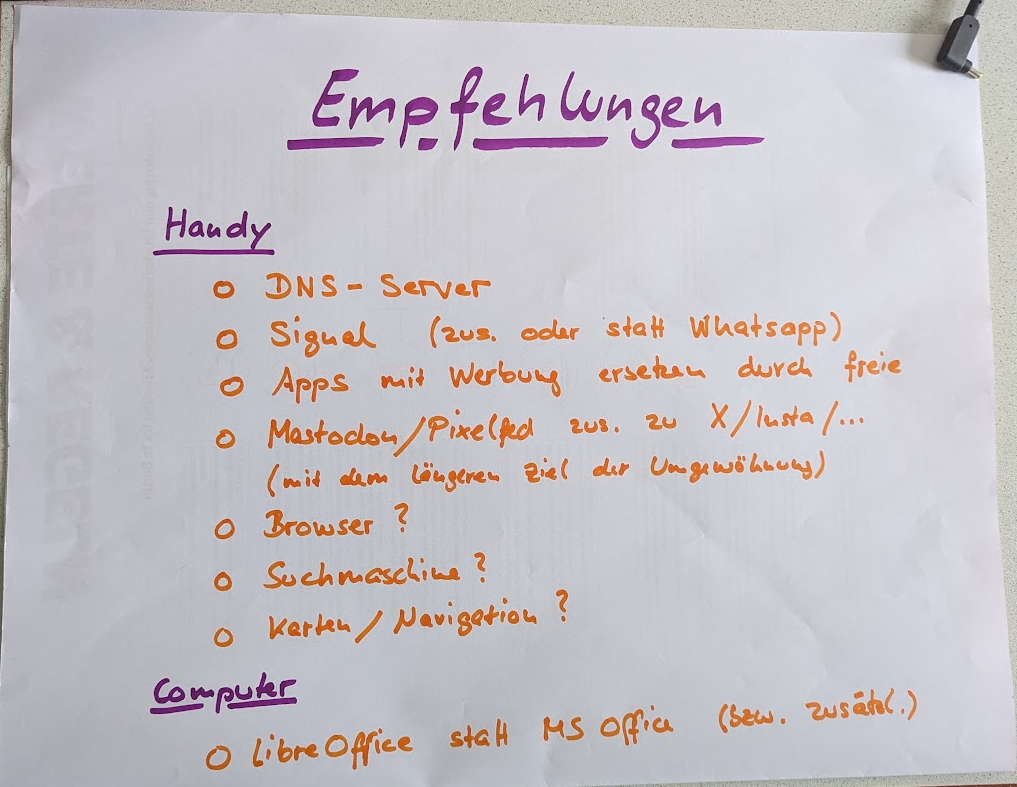 Empfehlungen
Handy
O DNS-Server
O Signal (zus. oder statt Whatsapp)
O Apps mit Werbung ersetzen durch freie
O Mastodon/Pixelfed zus. zu X/Insta/...
(mit dem längeren Ziel der Umgewöhnung)
O Browser?
O Suchmaschine?
O Karten/Navigation?
Computer
O LibreOffice statt MS Office (bzw. zusätzl.)